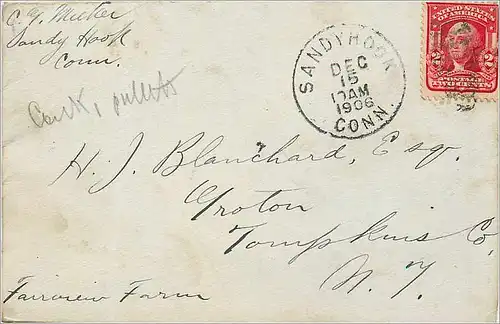 Sandy Hook
Conn.
UNITED STATES
OF AMERICA
POSTAGE
2 2
TWO CENTS
SANDY HOOK
DEC
15
1906
CONN.
pullets
H. J. Blanchard, Esq.
Groton
Tompkins Co.
N. Y.
Fairview Farm